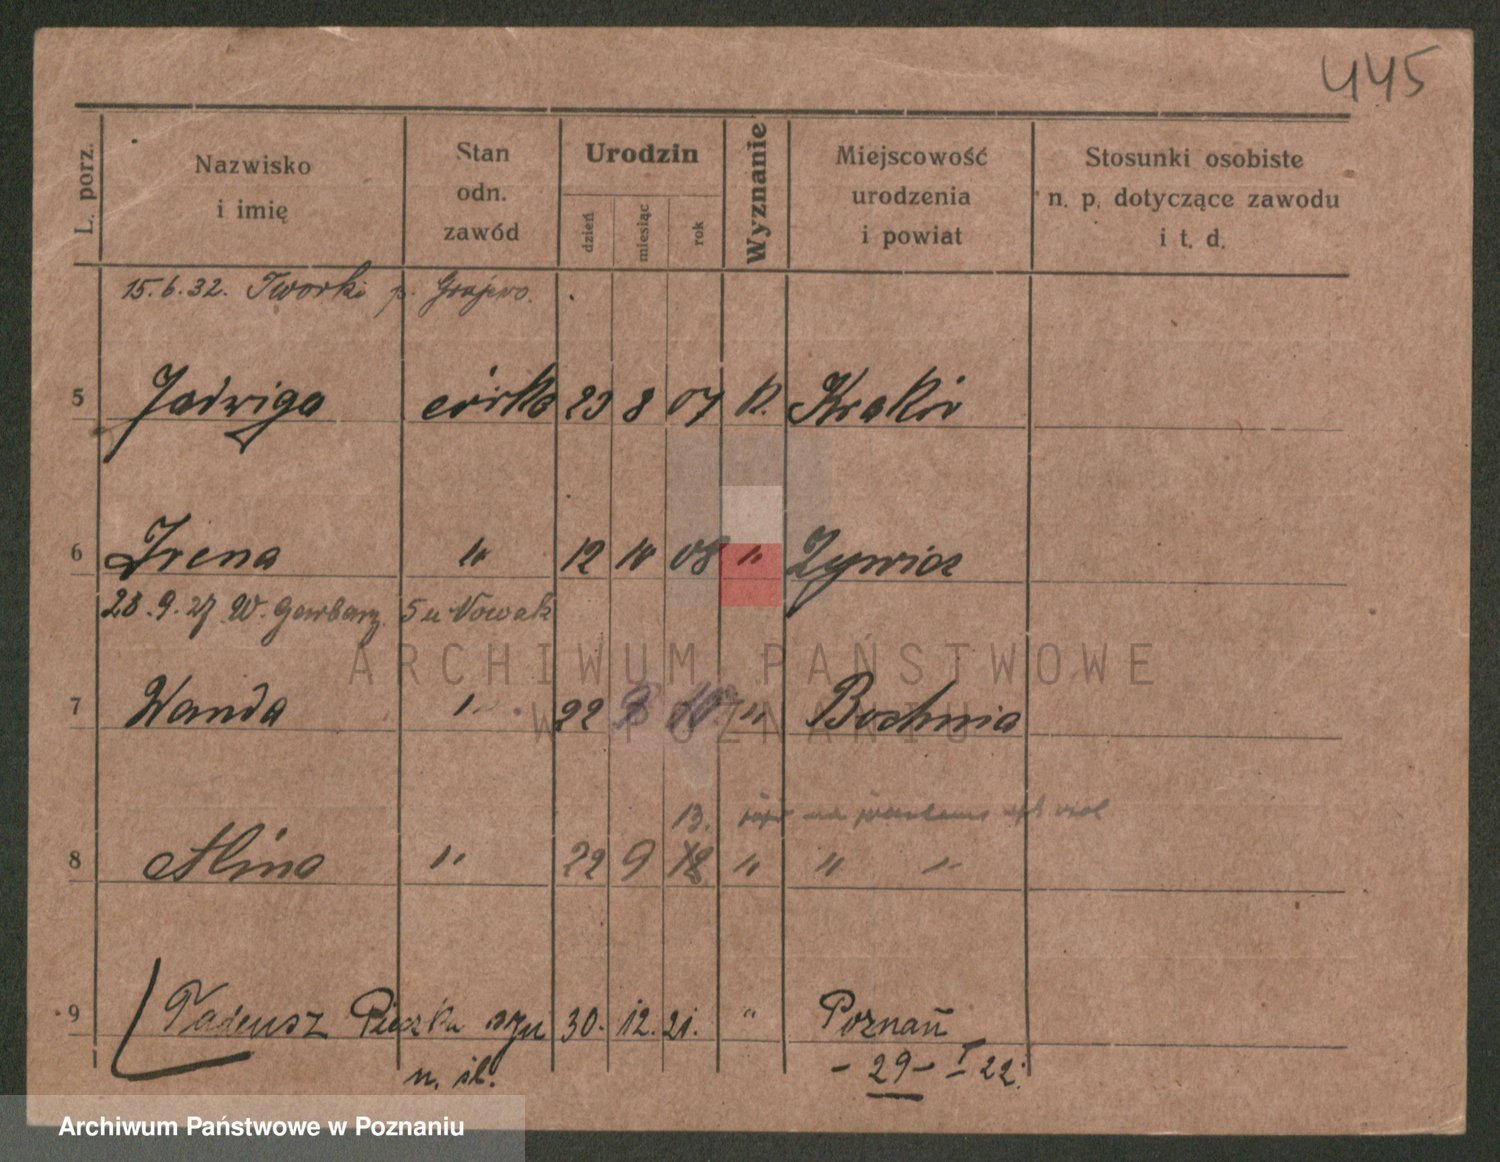 445
L. porz.
Nazwisko i imię
Stan odn. zawód
Urodzin
dzień
miesiąc
rok
Wyznanie
Miejscowość urodzenia i powiat
Stosunki osobiste n. p. dotyczące zawodu i t. d.
15.6.32. Tworki p. Grajewo.
5 Jadwiga córka 23 8 07 k. Kraków
6 Irena " 12 10 08 " Żywiec
28.9.27 W. Garbary 5 u Nowak
7 Wanda " 22 " Bochnia
13.
8 Alina " 22 9 18 " " "
9 Tadeusz Pieczka syn 30. 12. 21. " Poznań
n. śl. - 29 - I 22.
ARCHIWUM PAŃSTWOWE
W POZNANIU
Archiwum Państwowe w Poznaniu